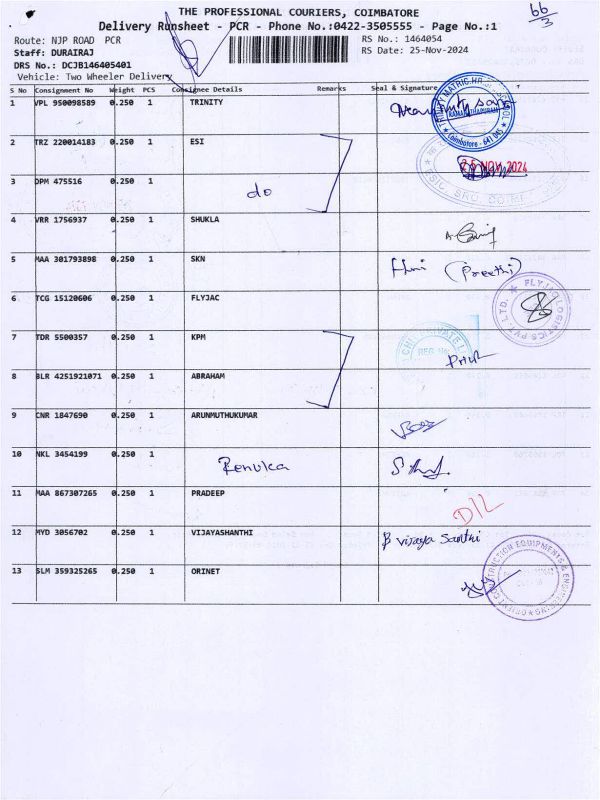 66/3
THE PROFESSIONAL COURIERS, COIMBATORE
Delivery Runsheet - PCR - Phone No.:0422-3505555 - Page No.:1
Route: NJP ROAD PCR
RS No.: 1464054
Staff: DURAIRAJ
RS Date: 25-Nov-2024
DRS No.: DCJB146405401
Vehicle: Two Wheeler Delivery
S No Consignment No Weight PCS Consignee Details Remarks Seal & Signature
1 VPL 950098589 0.250 1 TRINITY
2 TRZ 220014183 0.250 1 ESI
25 NOV 2024
3 DPM 475516 0.250 1 do
4 VRR 1756937 0.250 1 SHUKLA
5 MAA 301793898 0.250 1 SKN (Preethi)
6 TCG 15120606 0.250 1 FLYJAC
7 TDR 5500357 0.250 1 KPM
8 BLR 4251921071 0.250 1 ABRAHAM
9 CNR 1847690 0.250 1 ARUNMUTHUKUMAR
10 NKL 3454199 0.250 1 Renuka
11 MAA 867307265 0.250 1 PRADEEP D/L
12 MYD 3056702 0.250 1 VIJAYASHANTHI B vijaya Santhi
13 SLM 359325265 0.250 1 ORINET